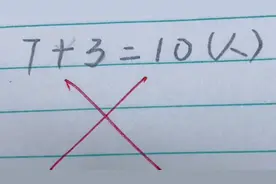 7+3=10(人)